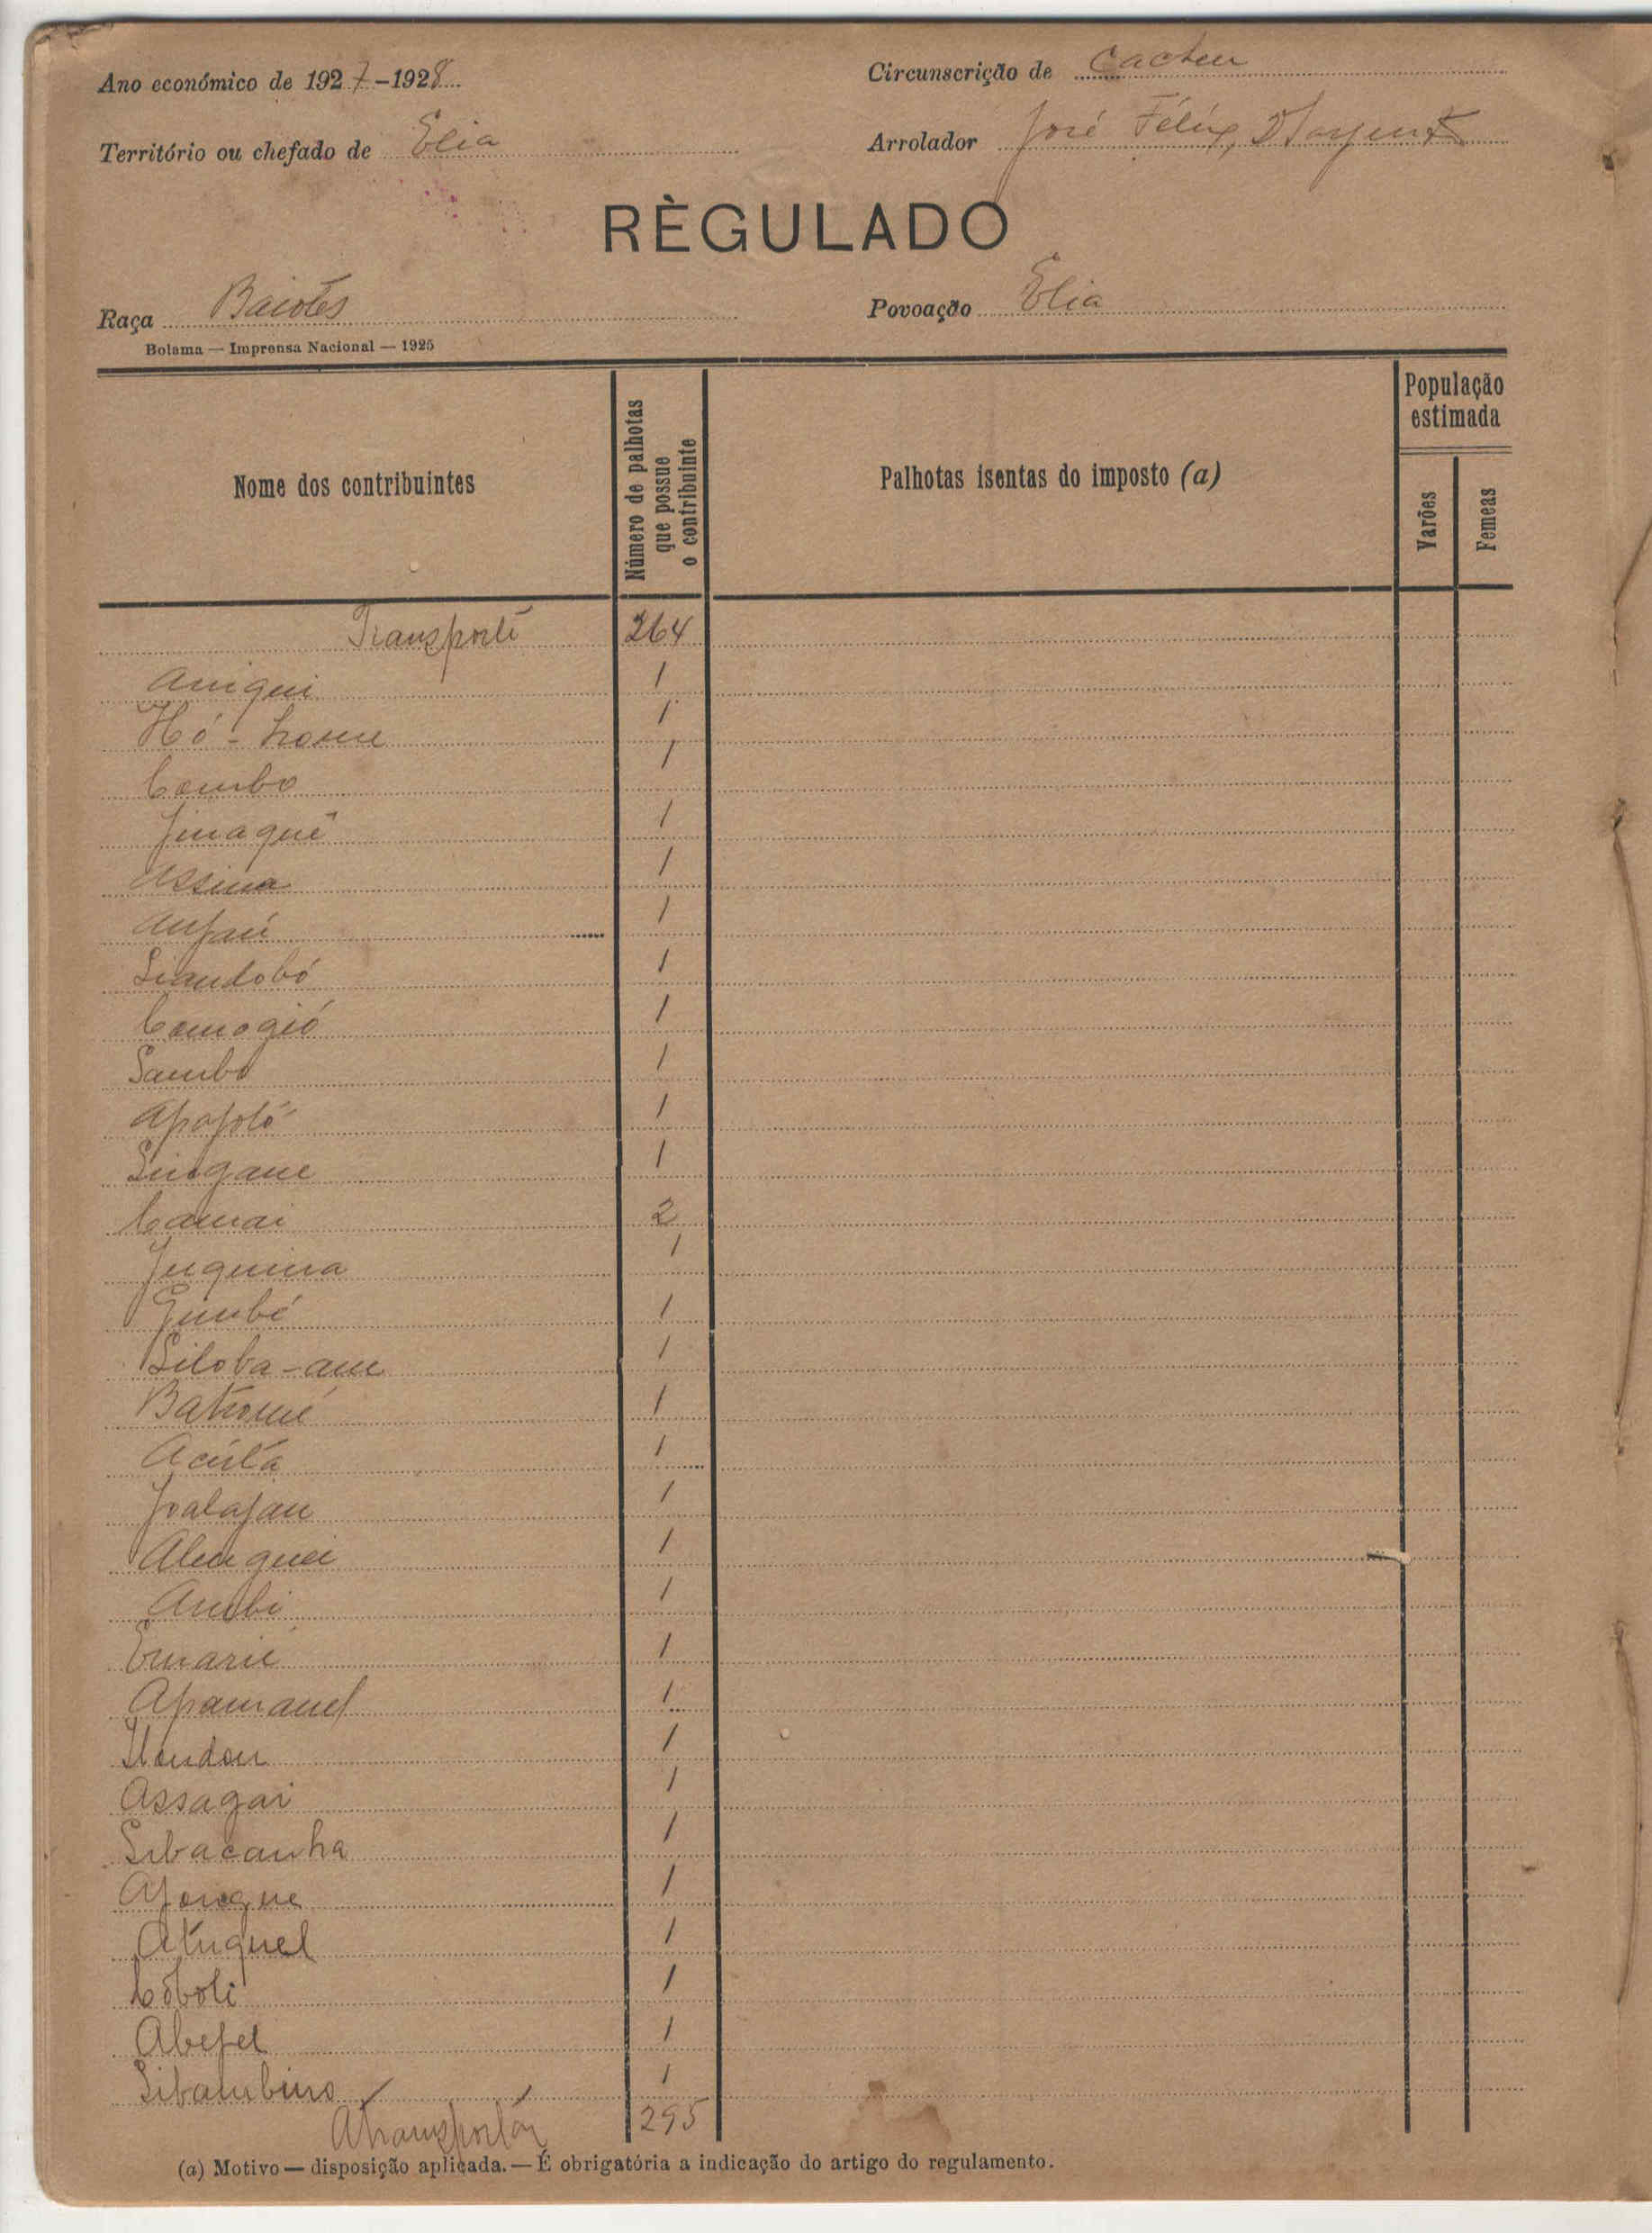 Ano económico de 1927-1928
Circunscrição de Cacheu
Território ou chefado de Elia
Arrolador José Félix,
RÈGULADO
Raça Baiotes
Povoação Elia
Bolama — Imprensa Nacional — 1925
Nome dos contribuintes
Número de palhotas
que possue
o contribuinte
Palhotas isentas do imposto (a)
População
estimada
Varões
Femeas
Transporte 264
Aniqui 1
1
Combo 1
Jinaquê 1
Assina 1
Anjau 1
Siandobó 1
Camogió 1
Sambo 1
Apopoló 1
Singane 1
Camai 2
Juquina 1
Gimbé 1
Siloba-am 1
Batiomé 1
Acúla 1
Joalajau 1
1
Ambi 1
Emarié 1
Apamanel 1
1
Assagai 1
Sibacanha 1
Ajongue 1
Atuquel 1
Cóboli 1
Abefel 1
Sibatubino 1
A transportar 295
(a) Motivo — disposição aplicada. — É obrigatória a indicação do artigo do regulamento.